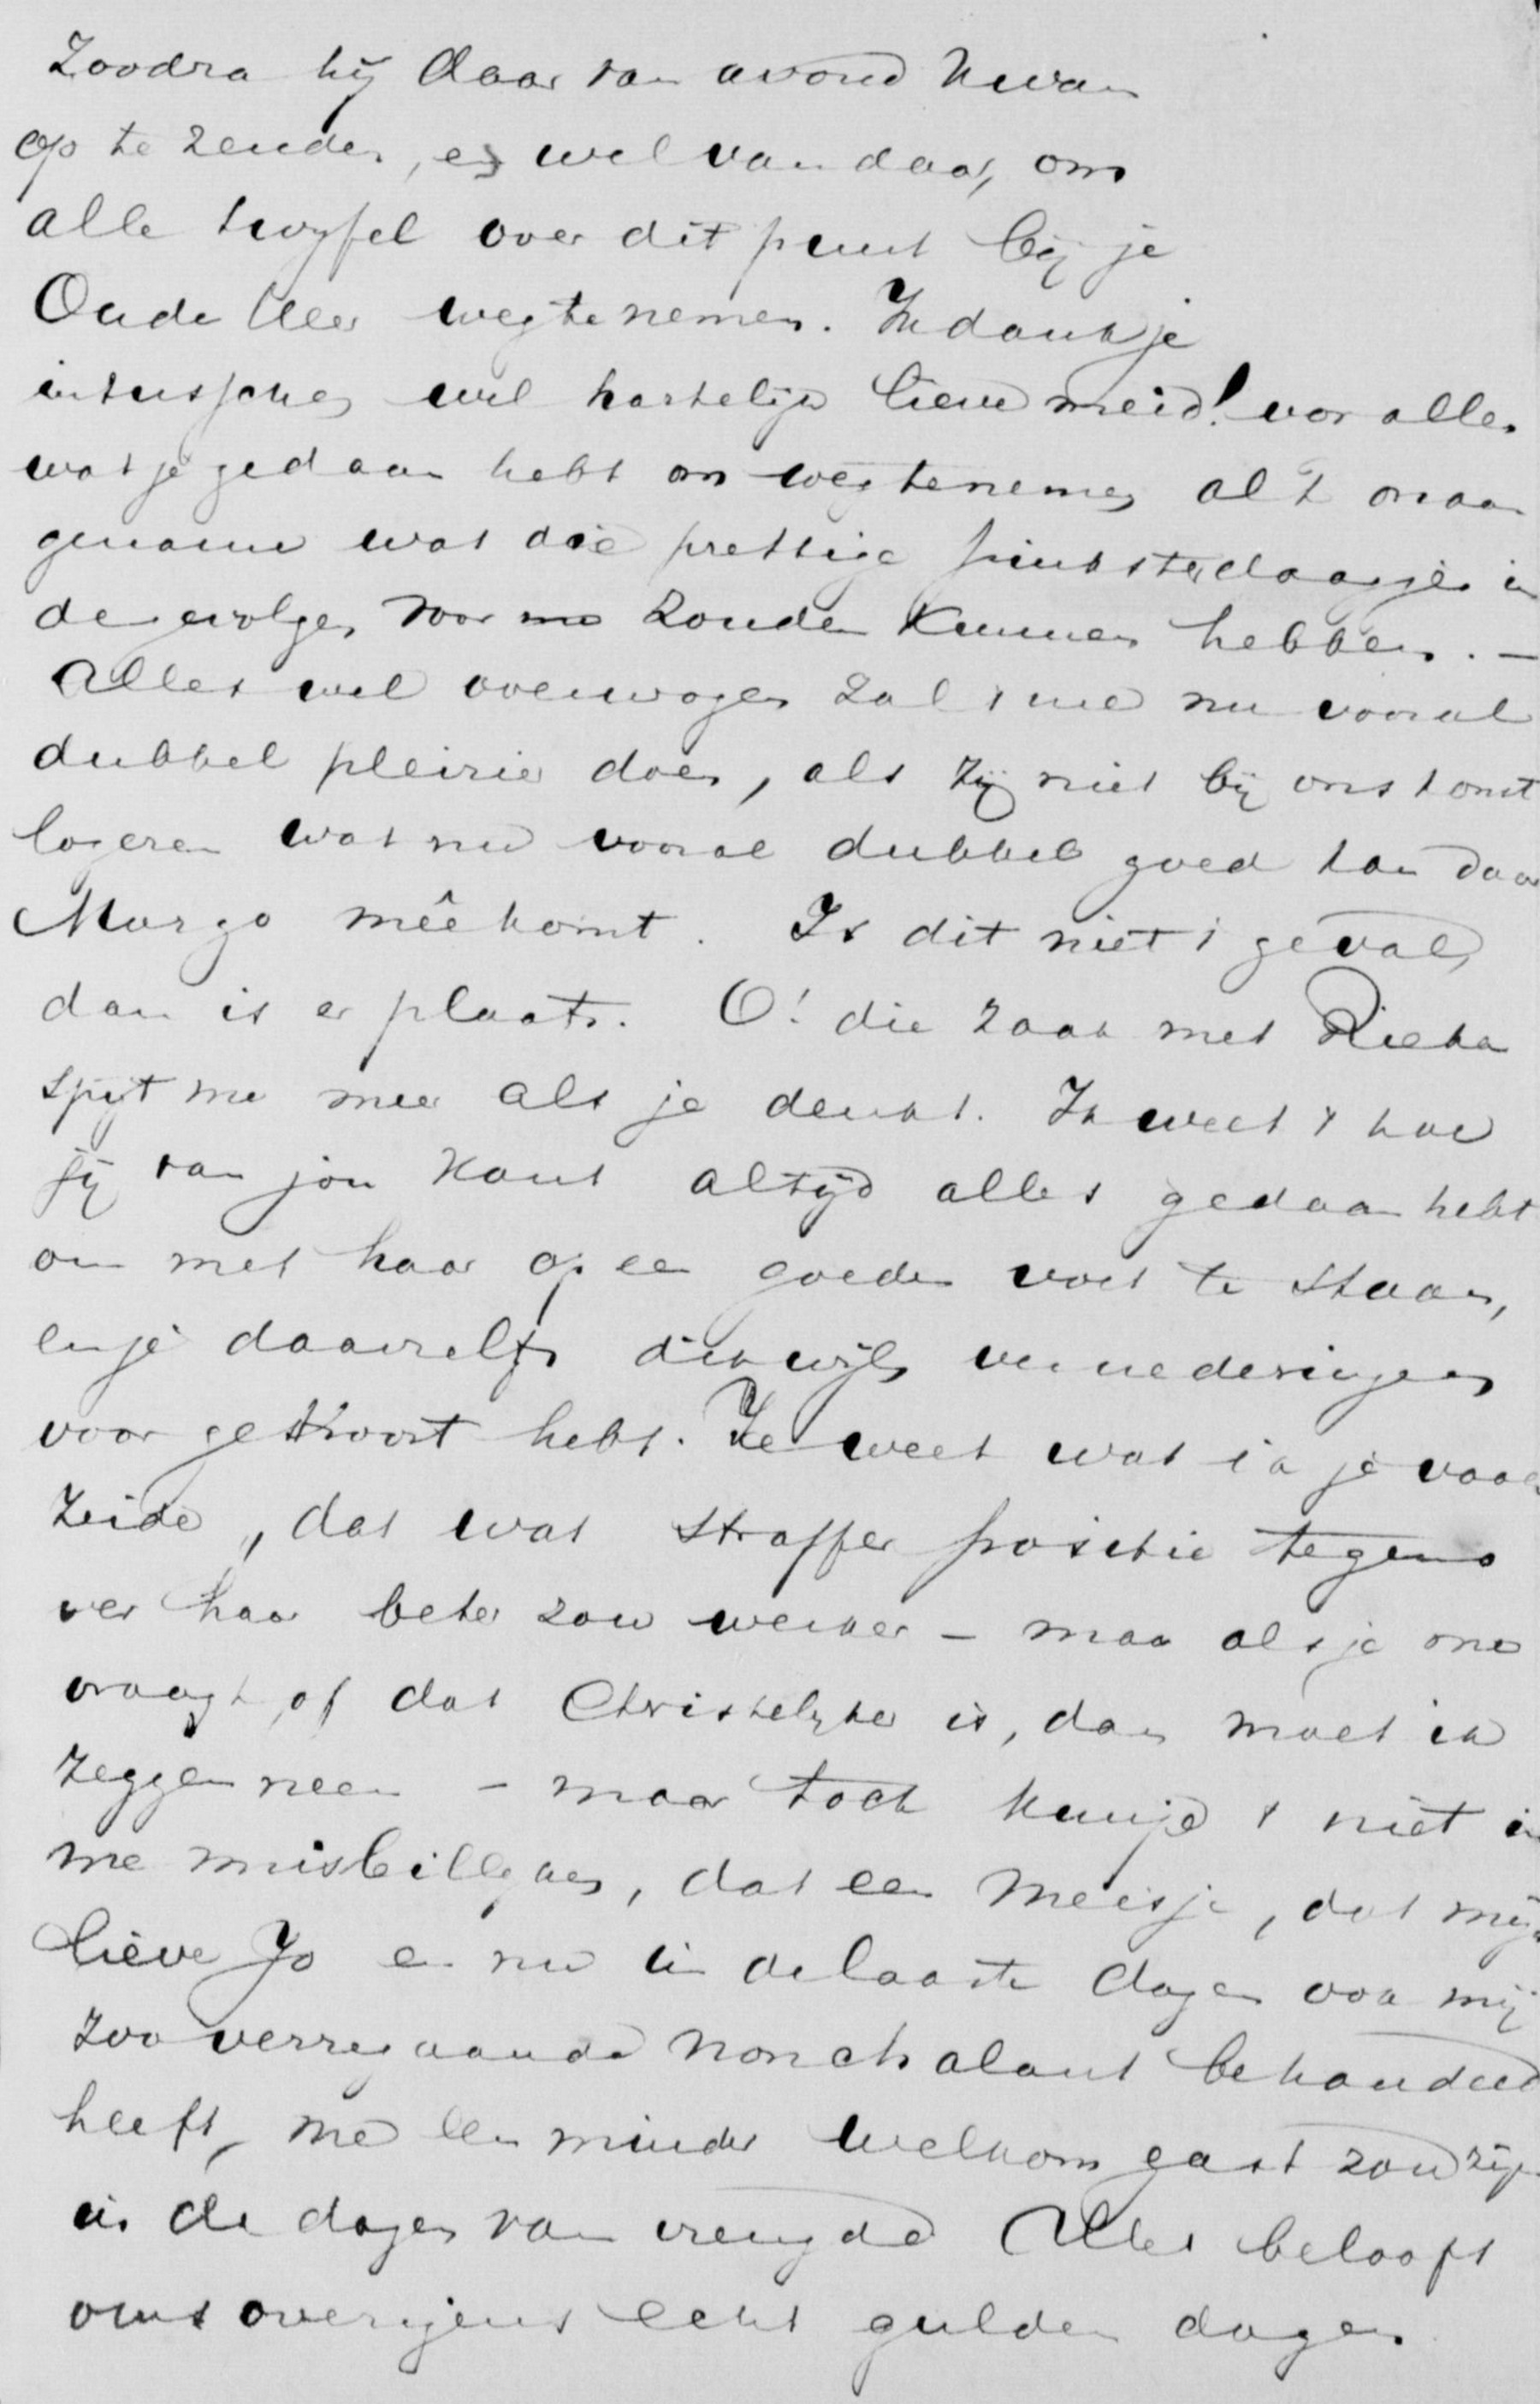 Zoodra hij daar van avond kwam
op te zenden, en wel van daar, om
alle twyfel over dit punt bij je
Oude Heer wegtenemen. Ik dank je
intusschen wel hartelijk lieve meid! voor alles
wat je gedaan hebt om wegtenemen al 't onaan
gename wat die prettige pinksterdaagjes in
de gevolgen voor me zouden kunnen hebben. —
Alles wel overwogen zal 't me nu vooral
dubbel pleizier doen, als zij niet bij ons komt
logeren wat nu vooral dubbel goed kan daar
Margo mêekomt. Is dit niet 't geval,
dan is er plaats. O! die zaak met Rieka
spijt me meer als je denkt. Ik weet 't hoe
jij van jou kant altijd alles gedaan hebt
om met haar op een goeden voet te staan,
en je daarzelfs dikwijls vernederingen
voor getroost hebt. Je weet wat ik je vaak
zeide, dat wat straffer positie tegeno
ver haar beter zou werken — maar als je me
vraagt of dat Christelyker is, dan moet ik
zeggen neen — maar toch kun je 't niet in
me misbillyken, dat een meisje, dat mijn
lieve Jo en nu in de laatste dagen ook mij
zoo verregaande nonchalant behandeld
heeft, me een minder welkom gast zou zijn
in de dagen van vreugde Alles belooft
ons overigens echt gulden dagen.